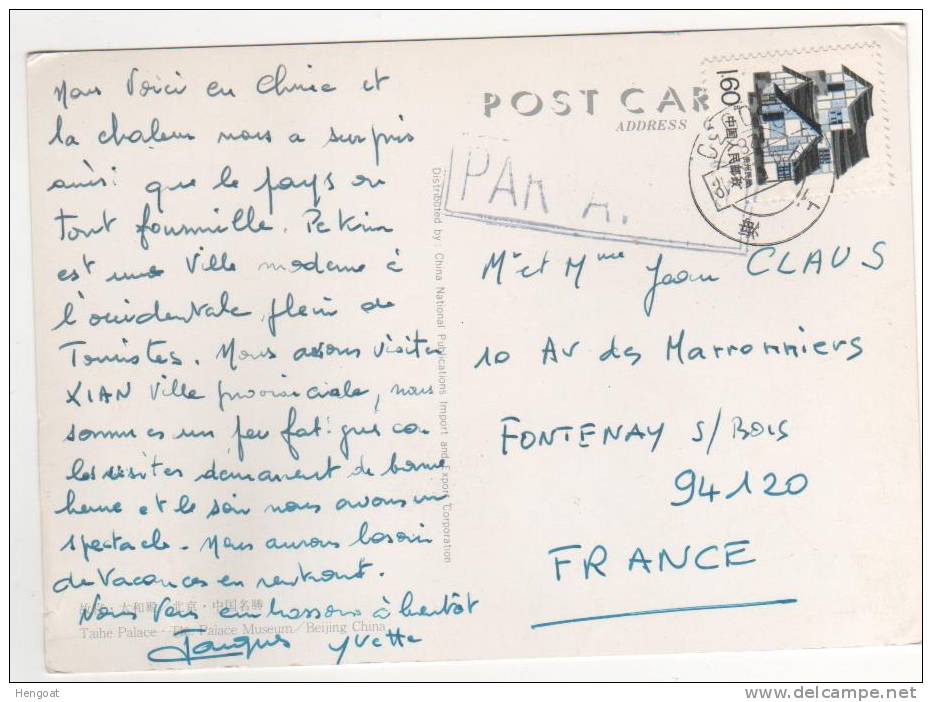 Nous Voici en Chine et
la chaleur nous a surpris
ainsi que le pays ou
tout fourmille. Pekin
est une Ville moderne à
l'occidentale, plein de
Touristes. Nous avons visiter
XIAN Ville provinciale, nous
sommes un peu fatigués ca
les visites démarrent de bonne
heure et le soir nous avons un
spectacle. Nous aurons besoin
de Vacances en rentrant.
Nous Vous embrassons à bientôt
Jacques Yvette
故宫·太和殿 北京·中国名勝
Taihe Palace · The Palace Museum Beijing China
Distributed by: China National Publications Import and Export Corporation
POST CAR
ADDRESS
PAR A.
160
中国人民邮政
海
Mr et Mme Jean CLAUS
10 Av des Marronniers
FONTENAY s/Bois
94120
FRANCE
Hengoat
www.delcampe.net